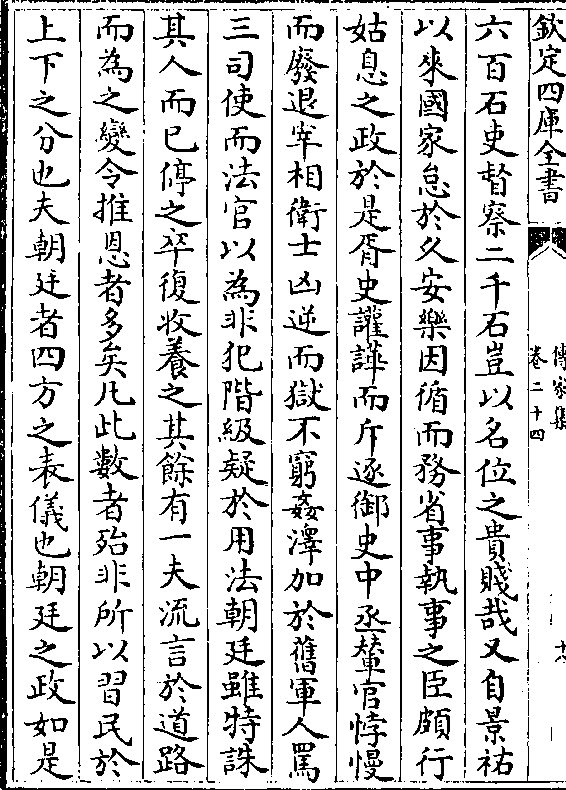 欽定四庫全書
傳家集
卷二十四
六百石吏督察二千石豈以名位之貴賤哉又自景祐
以來國家怠於久安樂因循而務省事執事之臣頗行
姑息之政於是胥史讙譁而斥逐御史中丞輦官悖慢
而廢退宰相衛士凶逆而獄不窮姦澤加於舊軍人罵
三司使而法官以為非犯階級疑於用法朝廷雖特誅
其人而已停之卒復收養之其餘有一夫流言於道路
而為之變令推恩者多矣凡此數者殆非所以習民於
上下之分也夫朝廷者四方之表儀也朝廷之政如是